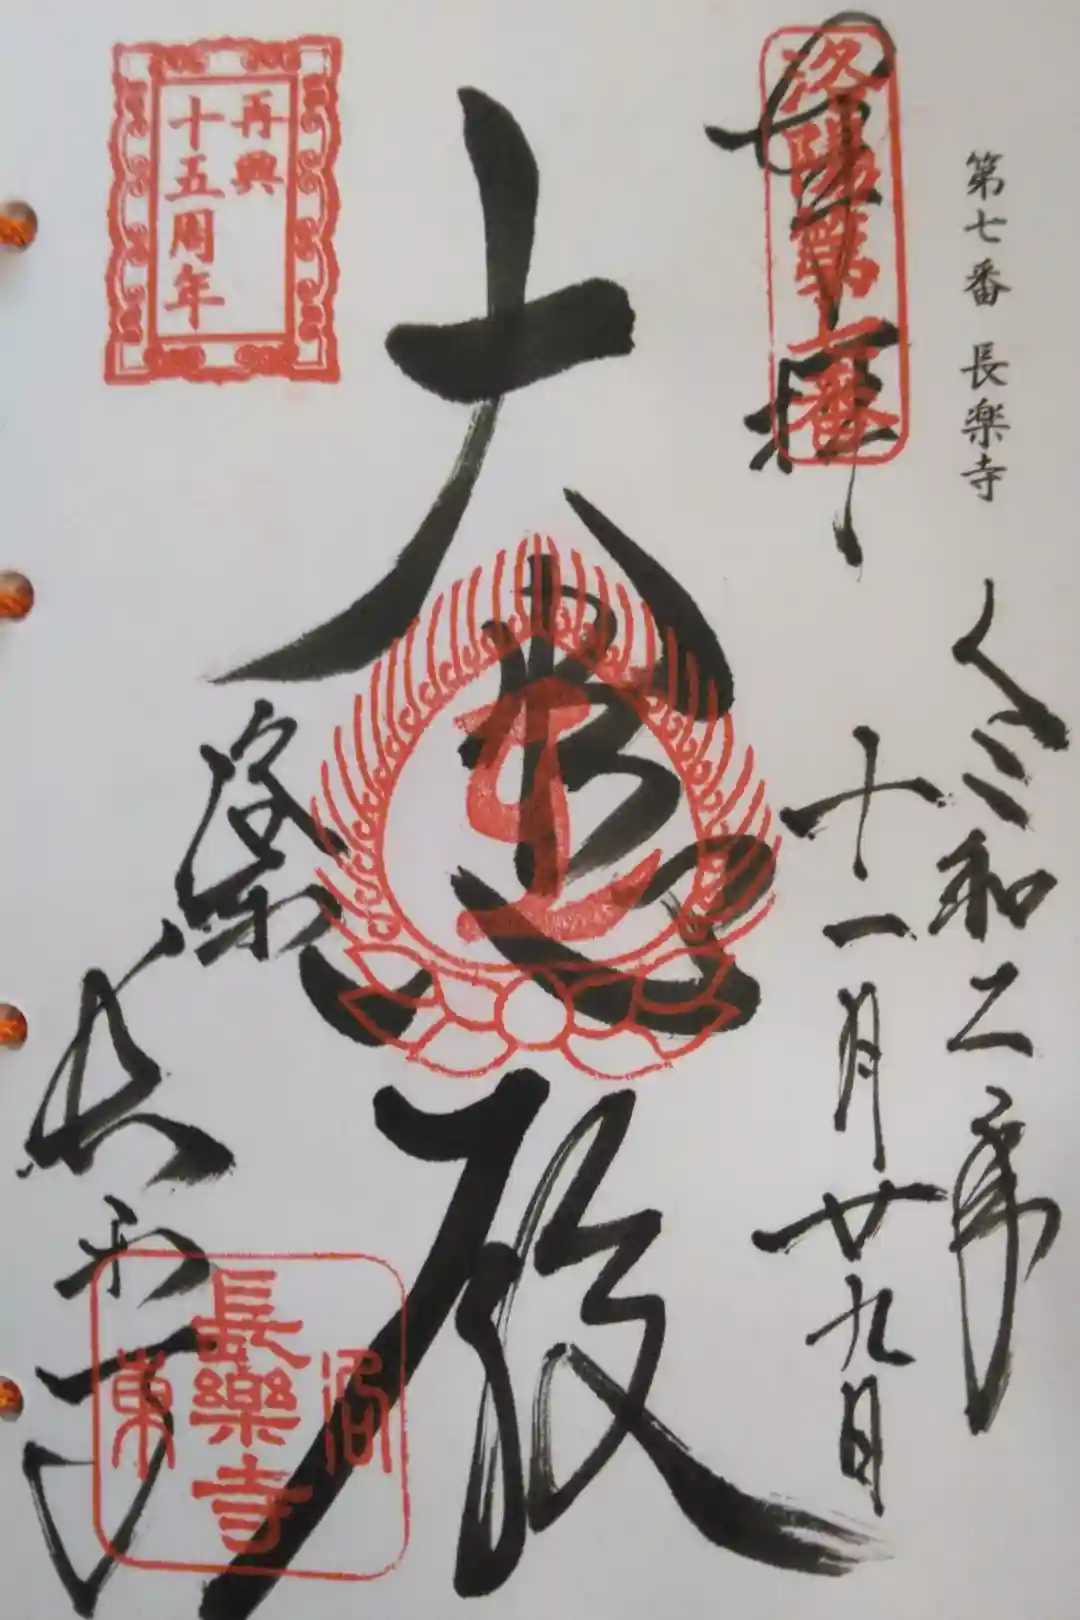 第七番 長楽寺
令和二年
十一月廿九日
奉拝
洛陽第七番
大悲殿
再興
十五周年
洛東
長楽寺
洛
東
長樂寺